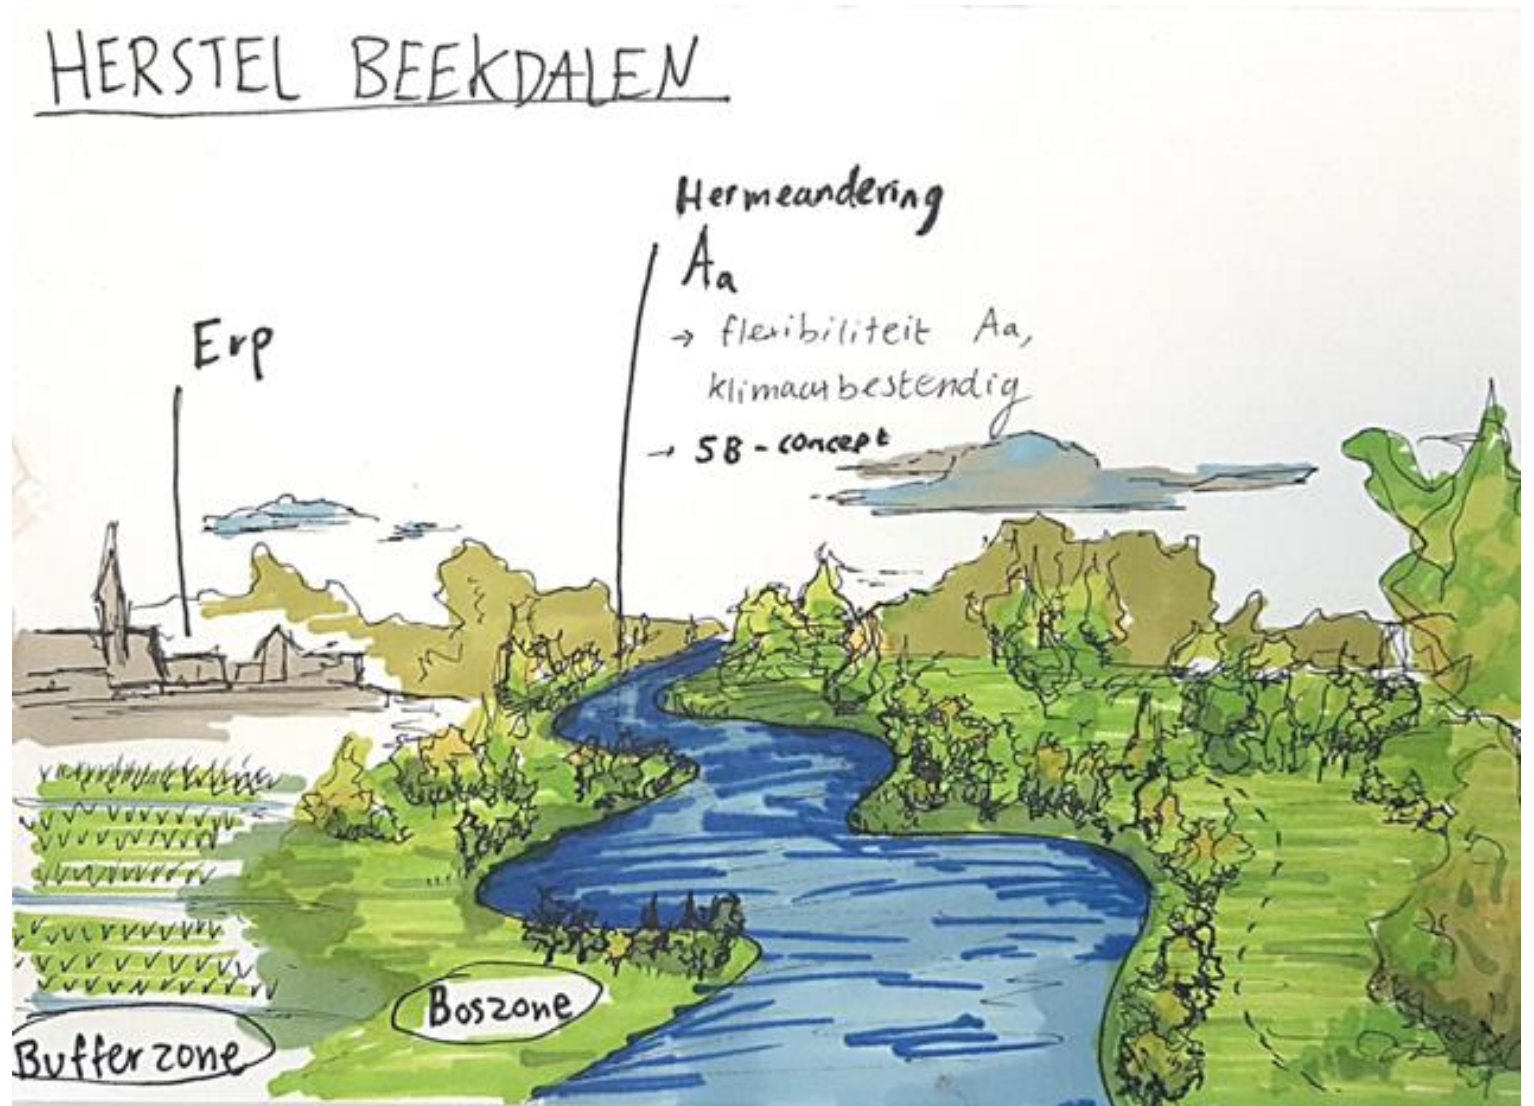 HERSTEL BEEKDALEN
Hermeandering
Aa
→ flexibiliteit Aa,
klimaatbestendig
→ 5B-concept
Erp
Boszone
Bufferzone